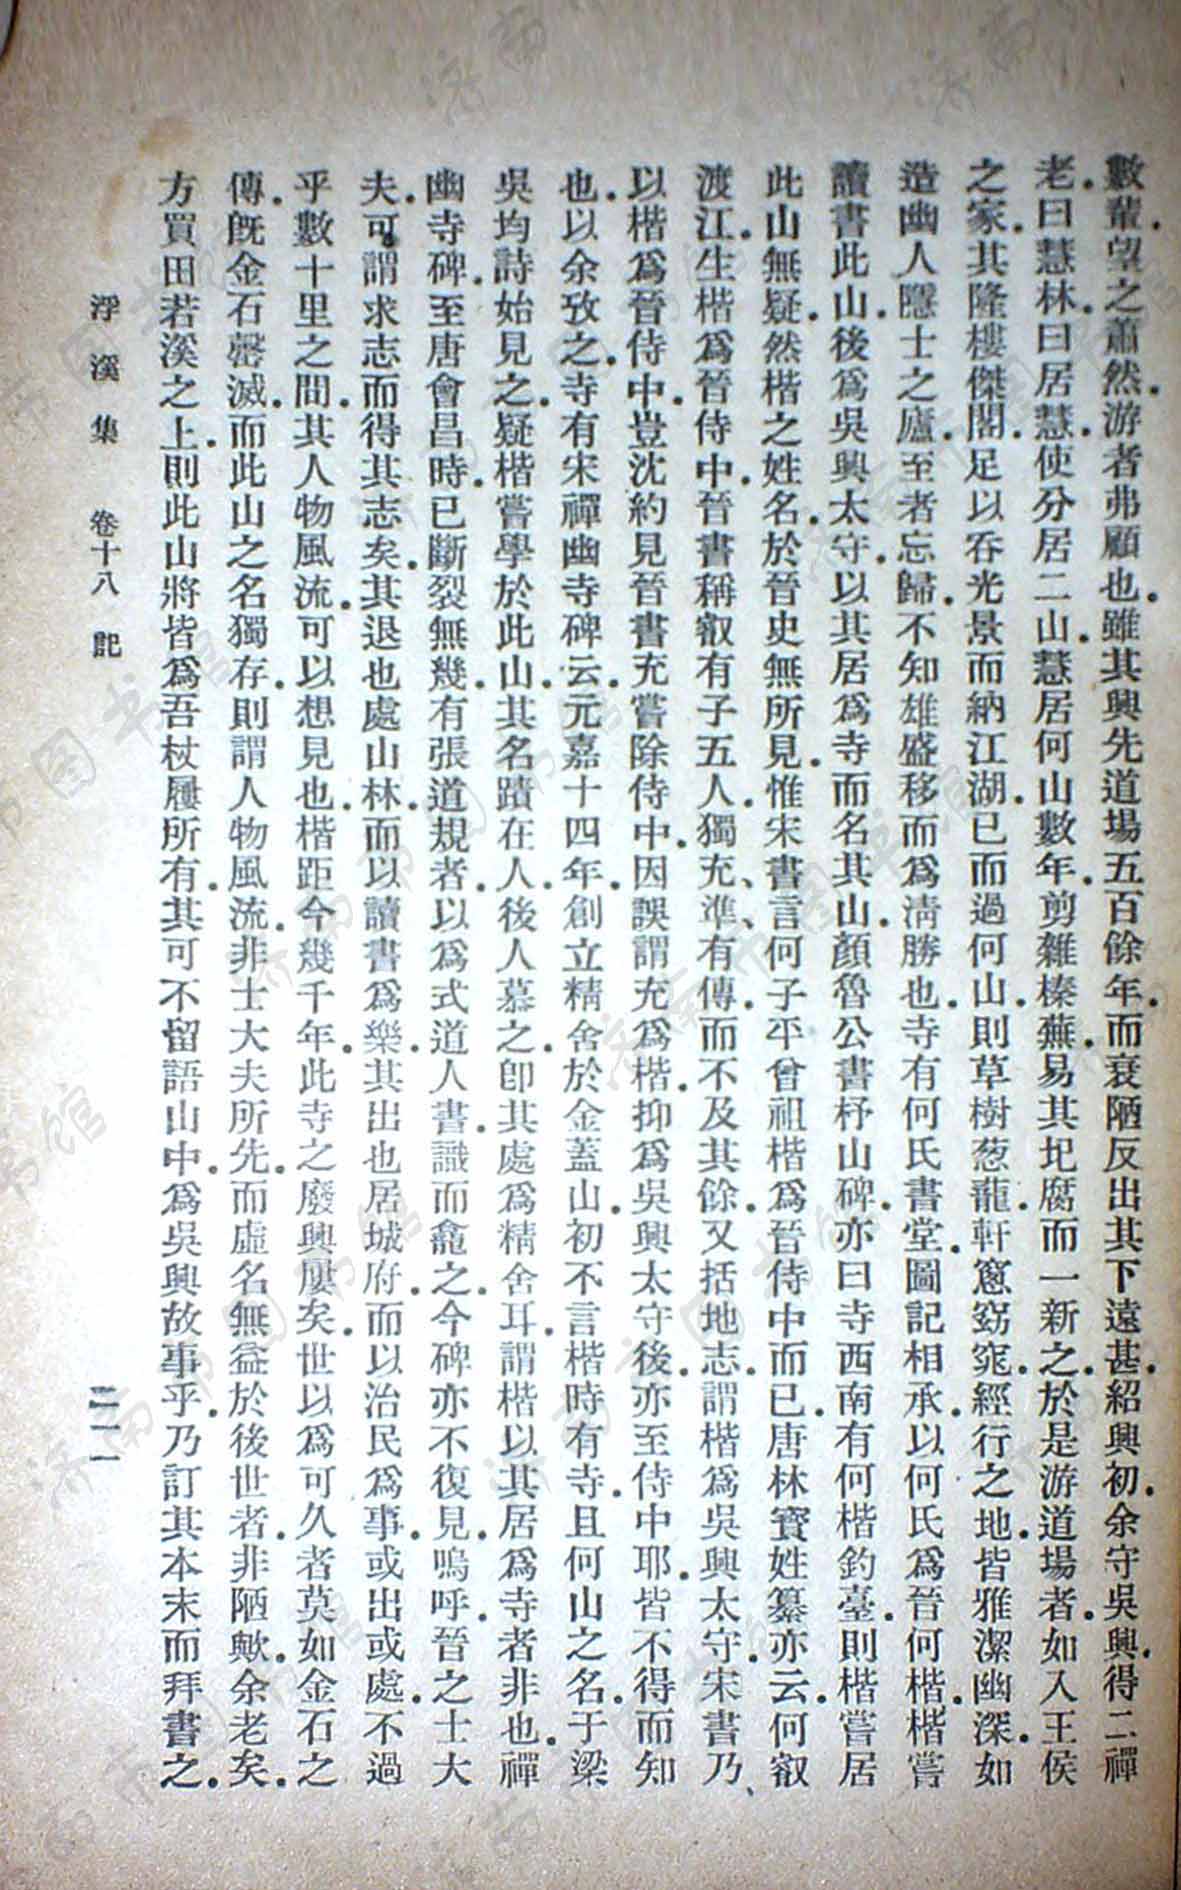 數輩望之蕭然游者弗顧也雖其興先道場五百餘年而衰陋反出其下遠甚紹興初余守吳興得二禪
老曰慧林曰居慧使分居二山慧居何山數年剪雜榛蕪易其圯腐而一新之於是游道場者如入王侯
之家其隆樓傑閣足以吞光景而納江湖已而過何山則草樹葱蘢軒窻窈窕經行之地皆雅潔幽深如
造幽人隱士之廬至者忘歸不知雄盛移而爲淸勝也寺有何氏書堂圖記相承以何氏爲晉何楷楷嘗
讀書此山後爲吳興太守以其居爲寺而名其山顏魯公書杼山碑亦曰寺西南有何楷釣臺則楷嘗居
此山無疑然楷之姓名於晉史無所見惟宋書言何子平曾祖楷爲晉侍中而已唐林寶姓纂亦云何叡
渡江生楷爲晉侍中晉書稱叡有子五人獨充、準、有傳而不及其餘又括地志謂楷爲吳興太守宋書乃
以楷爲晉侍中豈沈約見晉書充嘗除侍中因誤謂充爲楷抑爲吳興太守後亦至侍中耶皆不得而知
也以余攷之寺有宋禪幽寺碑云元嘉十四年創立精舍於金蓋山初不言楷時有寺且何山之名于梁
吳均詩始見之疑楷嘗學於此山其名蹟在人後人慕之卽其處爲精舍耳謂楷以其居爲寺者非也禪
幽寺碑至唐會昌時已斷裂無幾有張道規者以爲式道人書識而龕之今碑亦不復見嗚呼晉之士大
夫可謂求志而得其志矣其退也處山林而以讀書爲樂其出也居城府而以治民爲事或出或處不過
乎數十里之間其人物風流可以想見也楷距今幾千年此寺之廢興屢矣世以爲可久者莫如金石之
傳旣金石罄滅而此山之名獨存則謂人物風流非士大夫所先而虛名無益於後世者非陋歟余老矣
方買田若溪之上則此山將皆爲吾杖屨所有其可不留語山中爲吳興故事乎乃訂其本末而拜書之
浮溪集 卷十八 記 二二一